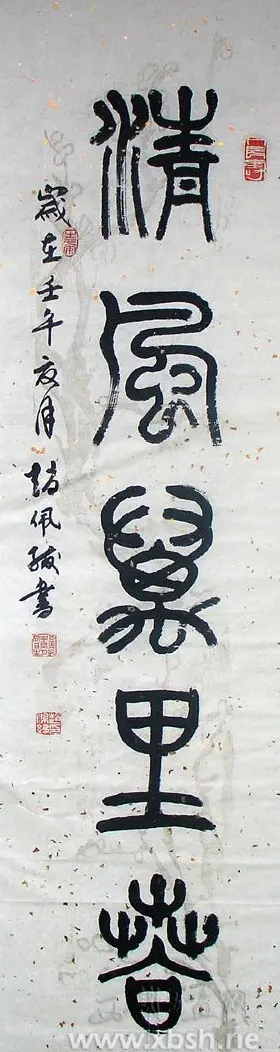 清風萬里春
歲在壬午夏月 趙佩 書
www.xbsh.ne